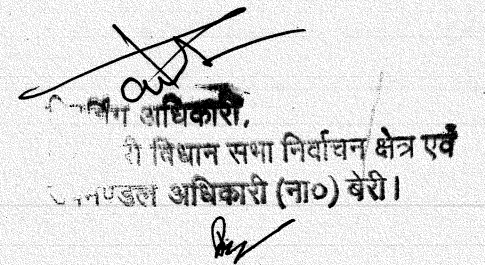 अधिकारी,
विधान सभा निर्वाचन क्षेत्र एवं
अधिकारी (ना०) बेरी।